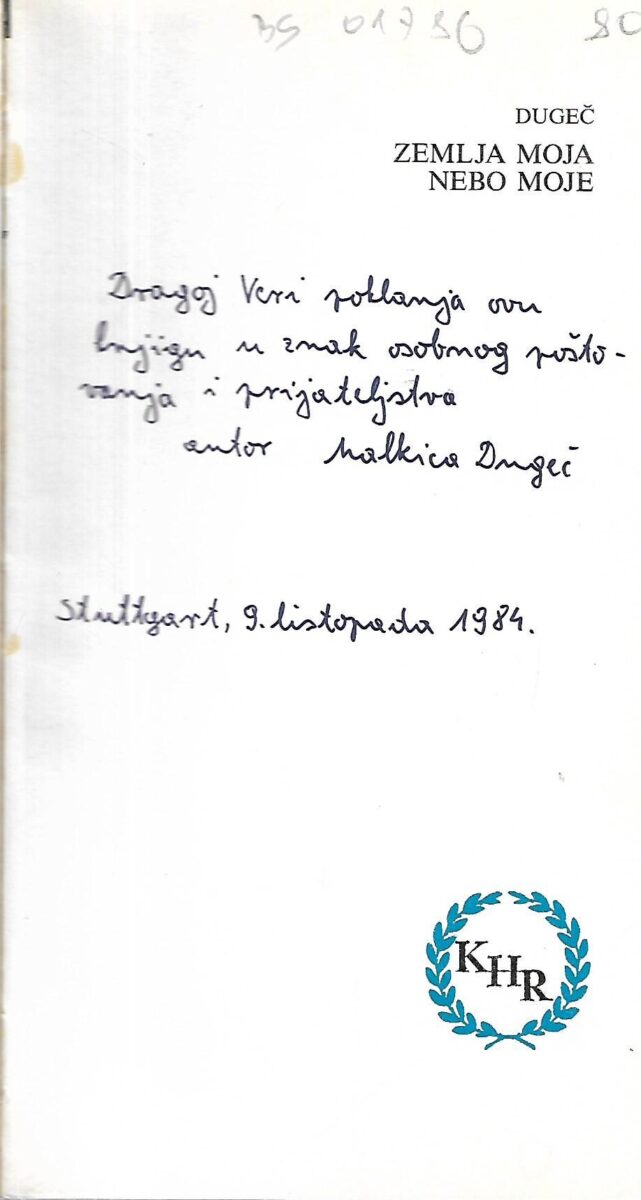 BS 01786 80
DUGEČ
ZEMLJA MOJA
NEBO MOJE
Dragoj Veri poklanja ovu
knjigu u znak osobnog pošto-
vanja i prijateljstva
autor Malkica Dugeč
Stuttgart, 9. listopada 1984.
KHR